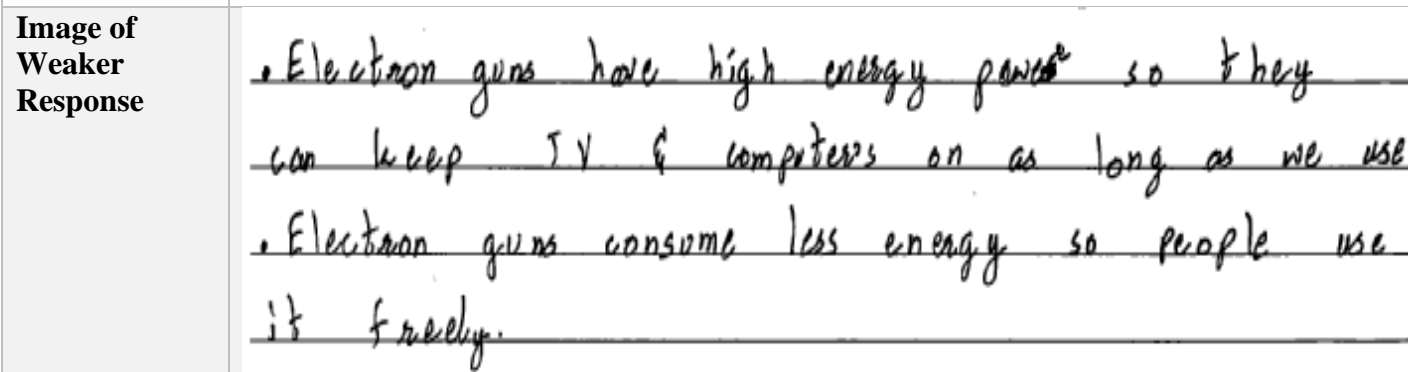 Image of
Weaker
Response
. Electron guns have high energy power so they
can keep TV & computer's on as long as we use
. Electron guns consume less energy so people use
it freely.